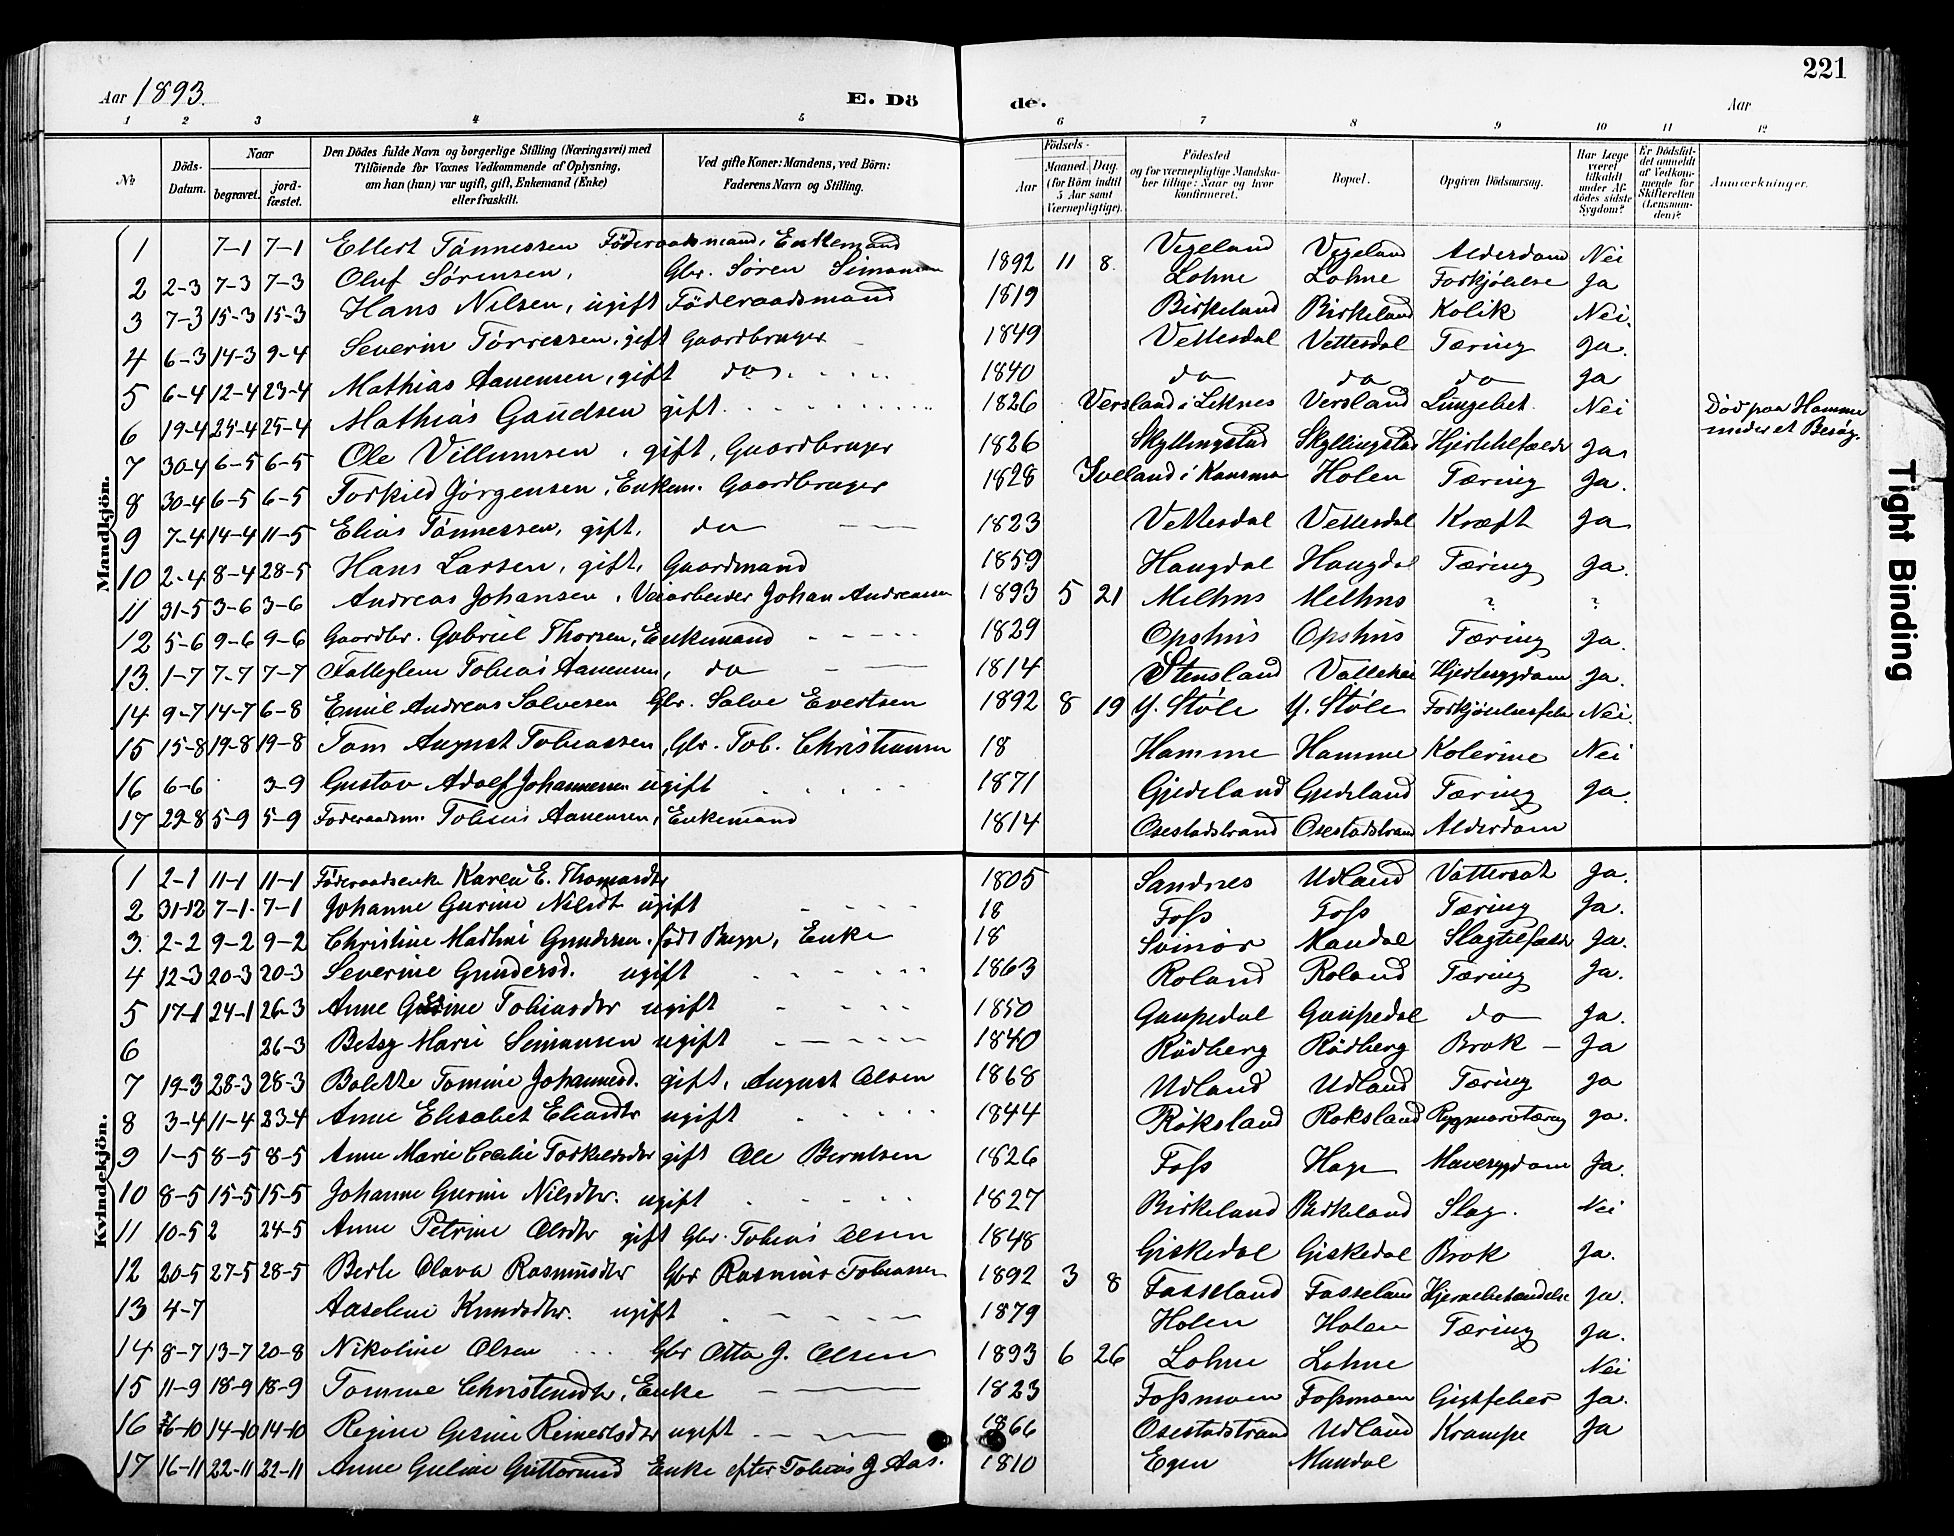 221
Aar 1893. E. Dö de. Aar
1 2 3 4 5 6 7 8 9 10 11 12
№ Döds-Datum. Naar begravet. jordfæstet. Den Dödes fulde Navn og borgerlige Stilling (Næringsvei) med Tilföiende for Voxnes Vedkommende af Oplysning, om han (hun) var ugift, gift, Enkemand (Enke) eller fraskilt. Ved gifte Koner: Mandens, ved Börn: Faderens Navn og Stilling. Födsels- Aar Maaned. Dag. (for Börn indtil 5 Aar samt Værnepligtige). Födested og for værnepligtige Mandskaber tillige: Naar og hvor konfirmeret. Bopæl. Opgiven Dödsaarsag. Har Læge været tilkaldt under Afdödes sidste Sygdom? Er Dödsfaldet anmeldt af Vedkommende for Skifteretten (Lensmanden)? Anmærkninger.
Mandkjön.
1 7-1 7-1 Ellert Tönnessen Föderaadsmand, Enkemand Vegeland Vegeland Alderdom Nei
2 2-3 7-3 7-3 Oluf Sørensen, Gbr. Søren Simonsen 1892 11 8. Lohne Lohne Forkjølelse Ja
3 7-3 15-3 15-3 Hans Nilsen, ugift Föderaadsmand 1819 Birkeland Birkeland Kolik Nei.
4 6-3 14-3 9-4 Severin Tørressen, gift Gaardbruger 1849 Vettesdal Vettesdal Tæring Ja.
5 6-4 12-4 23-4 Mathias Aanensen, gift do 1840 do do do Ja
6 19-4 25-4 25-4 Mathias Gaudsen gift 1826 Versland i Leknes Versland Lungebet. Nei Död paa Hamme under et Besög.
7 30-4 6-5 6-5 Ole Villumsen, gift, Gaardbruger 1826 Skyllingstad Skyllingstad Ja
8 30-4 6-5 6-5 Torkild Jörgensen, Enkem. Gaardbruger 1828 Iveland i Holen Tæring Ja.
9 7-4 14-4 11-5 Elias Tönnessen, gift. do 1823 Vettesdal Vettesdal Kræft Ja
10 2-4 8-4 28-5 Hans Larsen, gift. Gaardmand 1859 Haugdal Haugdal Tæring Ja.
11 31-5 3-6 3-6 Andreas Johansen, Johan Andreassen 1893 5 21 Melhus Melhus ? ?
12 5-6 9-6 9-6 Gaardbr. Gabriel Thorsen, Enkemand 1829 Opshus Opshus Tæring Ja.
13. 1-7 7-7 7-7 Fattiglem Tobias Aanensen, do 1814 Stensland Hjertesygdom Ja.
14 9-7 14-7 6-8 Emil Andreas Salvesen Gbr. Salve Evertsen 1892 8 19 Y. Støle Y. Støle Nei.
15 15-8 19-8 19-8 Tom August Tobiassen, Gbr. Tob. Christiansen 18 Hamme Hamme Kolerine Nei
16 6-6 3-9 Gustav Adolf Johannessen ugift 1871 Gjedeland Gjedeland Tæring Ja.
17 29-8 5-9 5-9 Föderaadsm. Tobias Aanensen, Enkemand 1814 Osestadstrand Osestadstrand Alderdom
Kvindekjön.
1 2-1 11-1 11-1 Föderaadsenke Karen E. Thomasdtr 1805 Sandnes Udland Vattersot Ja.
2 31-12 7-1 7-1 Johanne Gurine Nilsdt ugift 18 Foss Foss Tæring Ja.
3. 2-2 9-2 9-2 Christine Mathea Gundersen, född Bugge, Enke 18 Svinör Mandal Slagtilfælde Ja.
4 12-3 20-3 20-3 Severine Gundersd. ugift 1863 Roland Roland Tæring Ja.
5 17-1 24-1 26-3 Anne Gesine Tobiasdtr ugift 1850 Gaupedal Gaupedal do Ja.
6 26-3 Betsy Marie Simonsen ugift 1840 Rödberg Rödberg Brok Ja
7 19-3 28-3 28-3 Bolette Tomine Johannesd. gift, August Olsen 1868 Udland Udland Tæring Ja
8 3-4 11-4 23-4 Anne Elisabet Eliasdtr ugift 1844 Röksland Roksland Rygmarvstæring Ja.
9 1-5 8-5 8-5 Anne Marie Cecilie Torkildsdtr gift Ole Berntsen 1826 Foss Mavesygdom Ja.
10 8-5 15-5 15-5 Johanne Gurine Nilsdtr. ugift 1827 Birkeland Birkeland Slag. Nei
11 10-5 2 24-5 Anne Petrine Olsdtr gift Gbr. Tobias Olsen 1848 Giskedal Giskedal Brok Ja.
12 20-5 27-5 28-5 Berte Olava Rasmusdtr Gbr Rasmus Tobiassen 1892 3 8 Fasseland Fasseland Ja.
13 4-7 Aaselene Knudsdtr. ugift 1879 Holen Holen Tæring Ja.
14 8-7 13-7 20-8 Nikoline Olsen Gbr Otto J. Olsen 1893 6 26 Lohne Lohne Nei
15 11-9 18-9 18-9 Tomine Christensdtr, Enke 1823 Fossmoen Fossmoen Gigtfeber Ja.
16 6-10 14-10 14-10 Regine Gesine Reinertsdtr ugift 1866 Osestadstrand Udland Krampe Ja
17 16-11 22-11 22-11 Anne Guline Guttormsd Enke efter Tobias J. Aas. 1810 Egen Mandal
Tight Binding